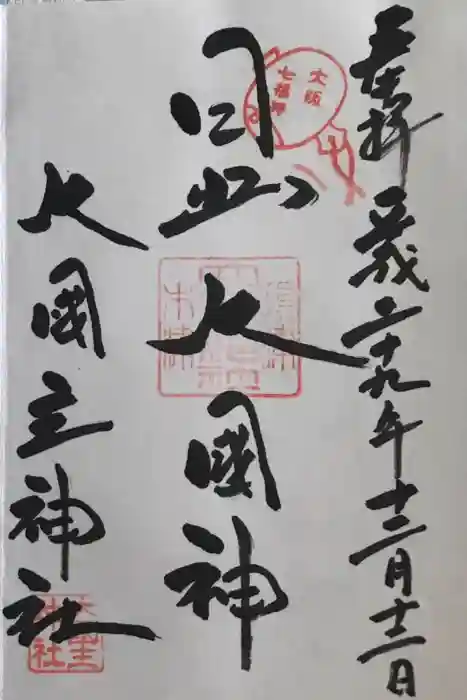 奉拝 平成二十九年十二月十二日
大阪
七福神
日出大國神
大國主神社